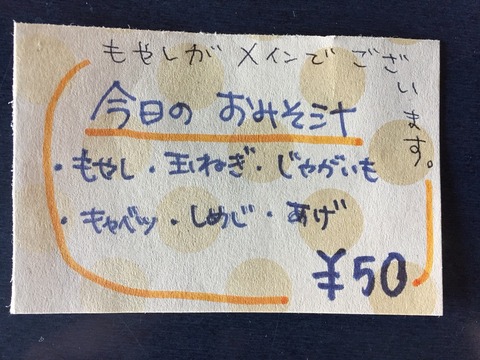 もやしがメインでございます。
今日の おみそ汁
・もやし・玉ねぎ・じゃがいも
・キャベツ・しめじ・あげ
¥50